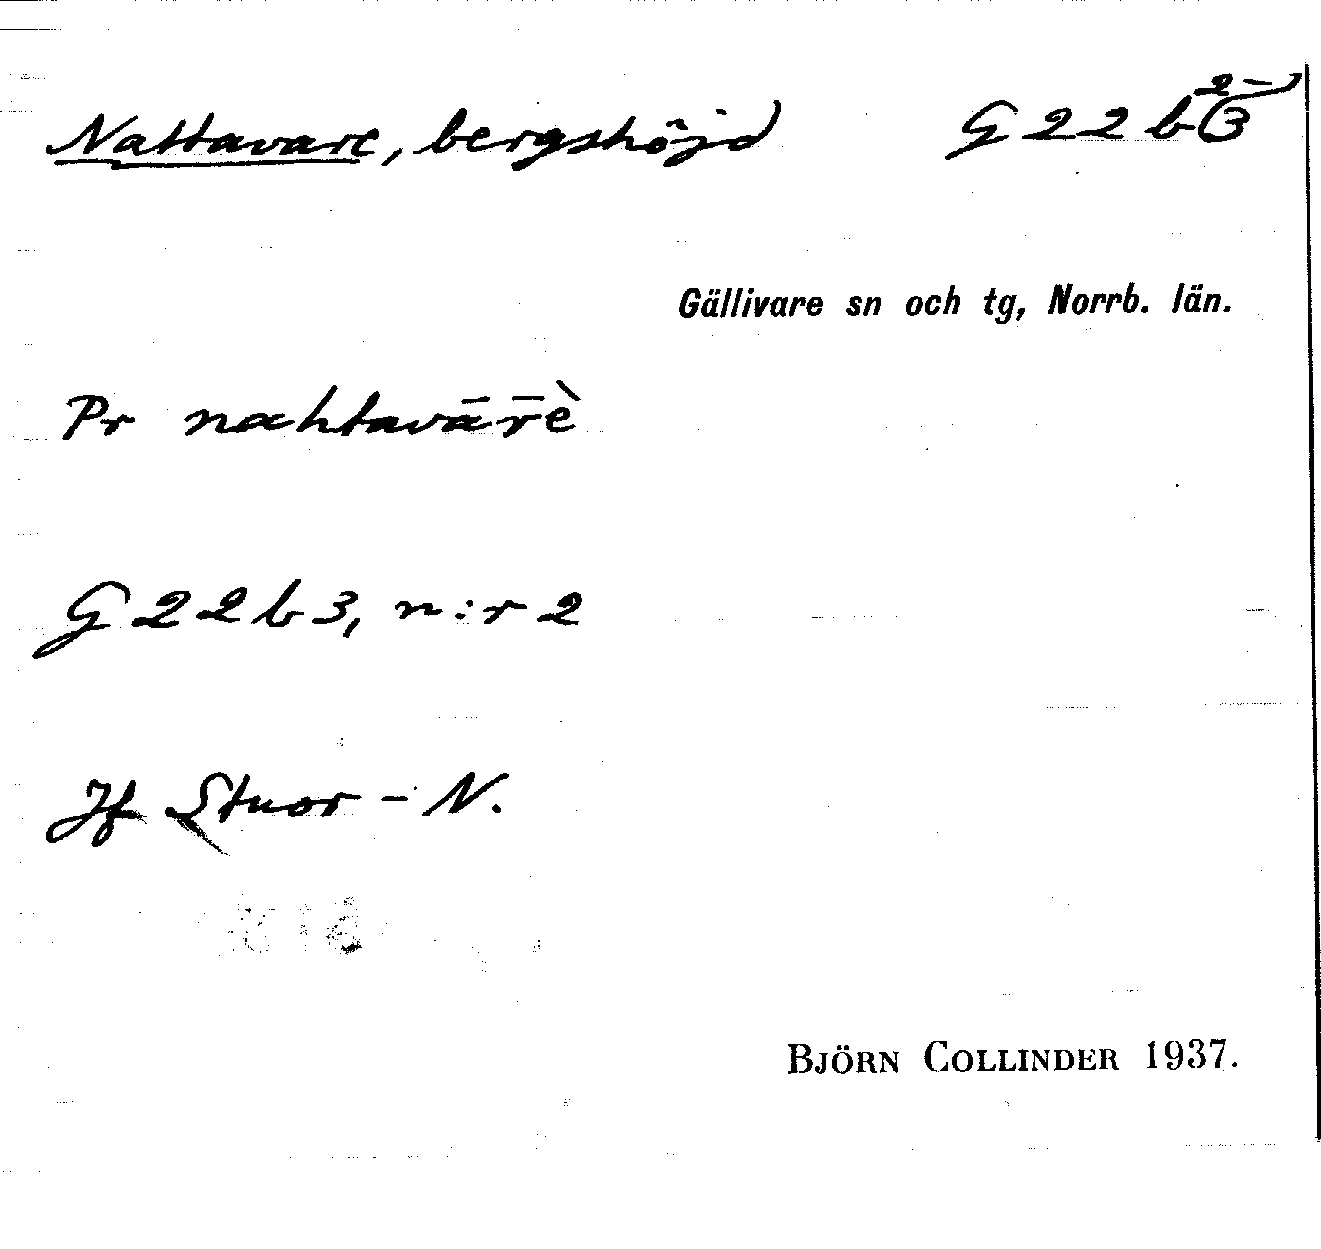 Nattavare, bergshöjd G 22 b 2-3
Gällivare sn och tg, Norrb. län.
Pr nahtavār̄è
G 22 b 3, n:r 2
Jf Stuor-N.
BJÖRN COLLINDER 1937.